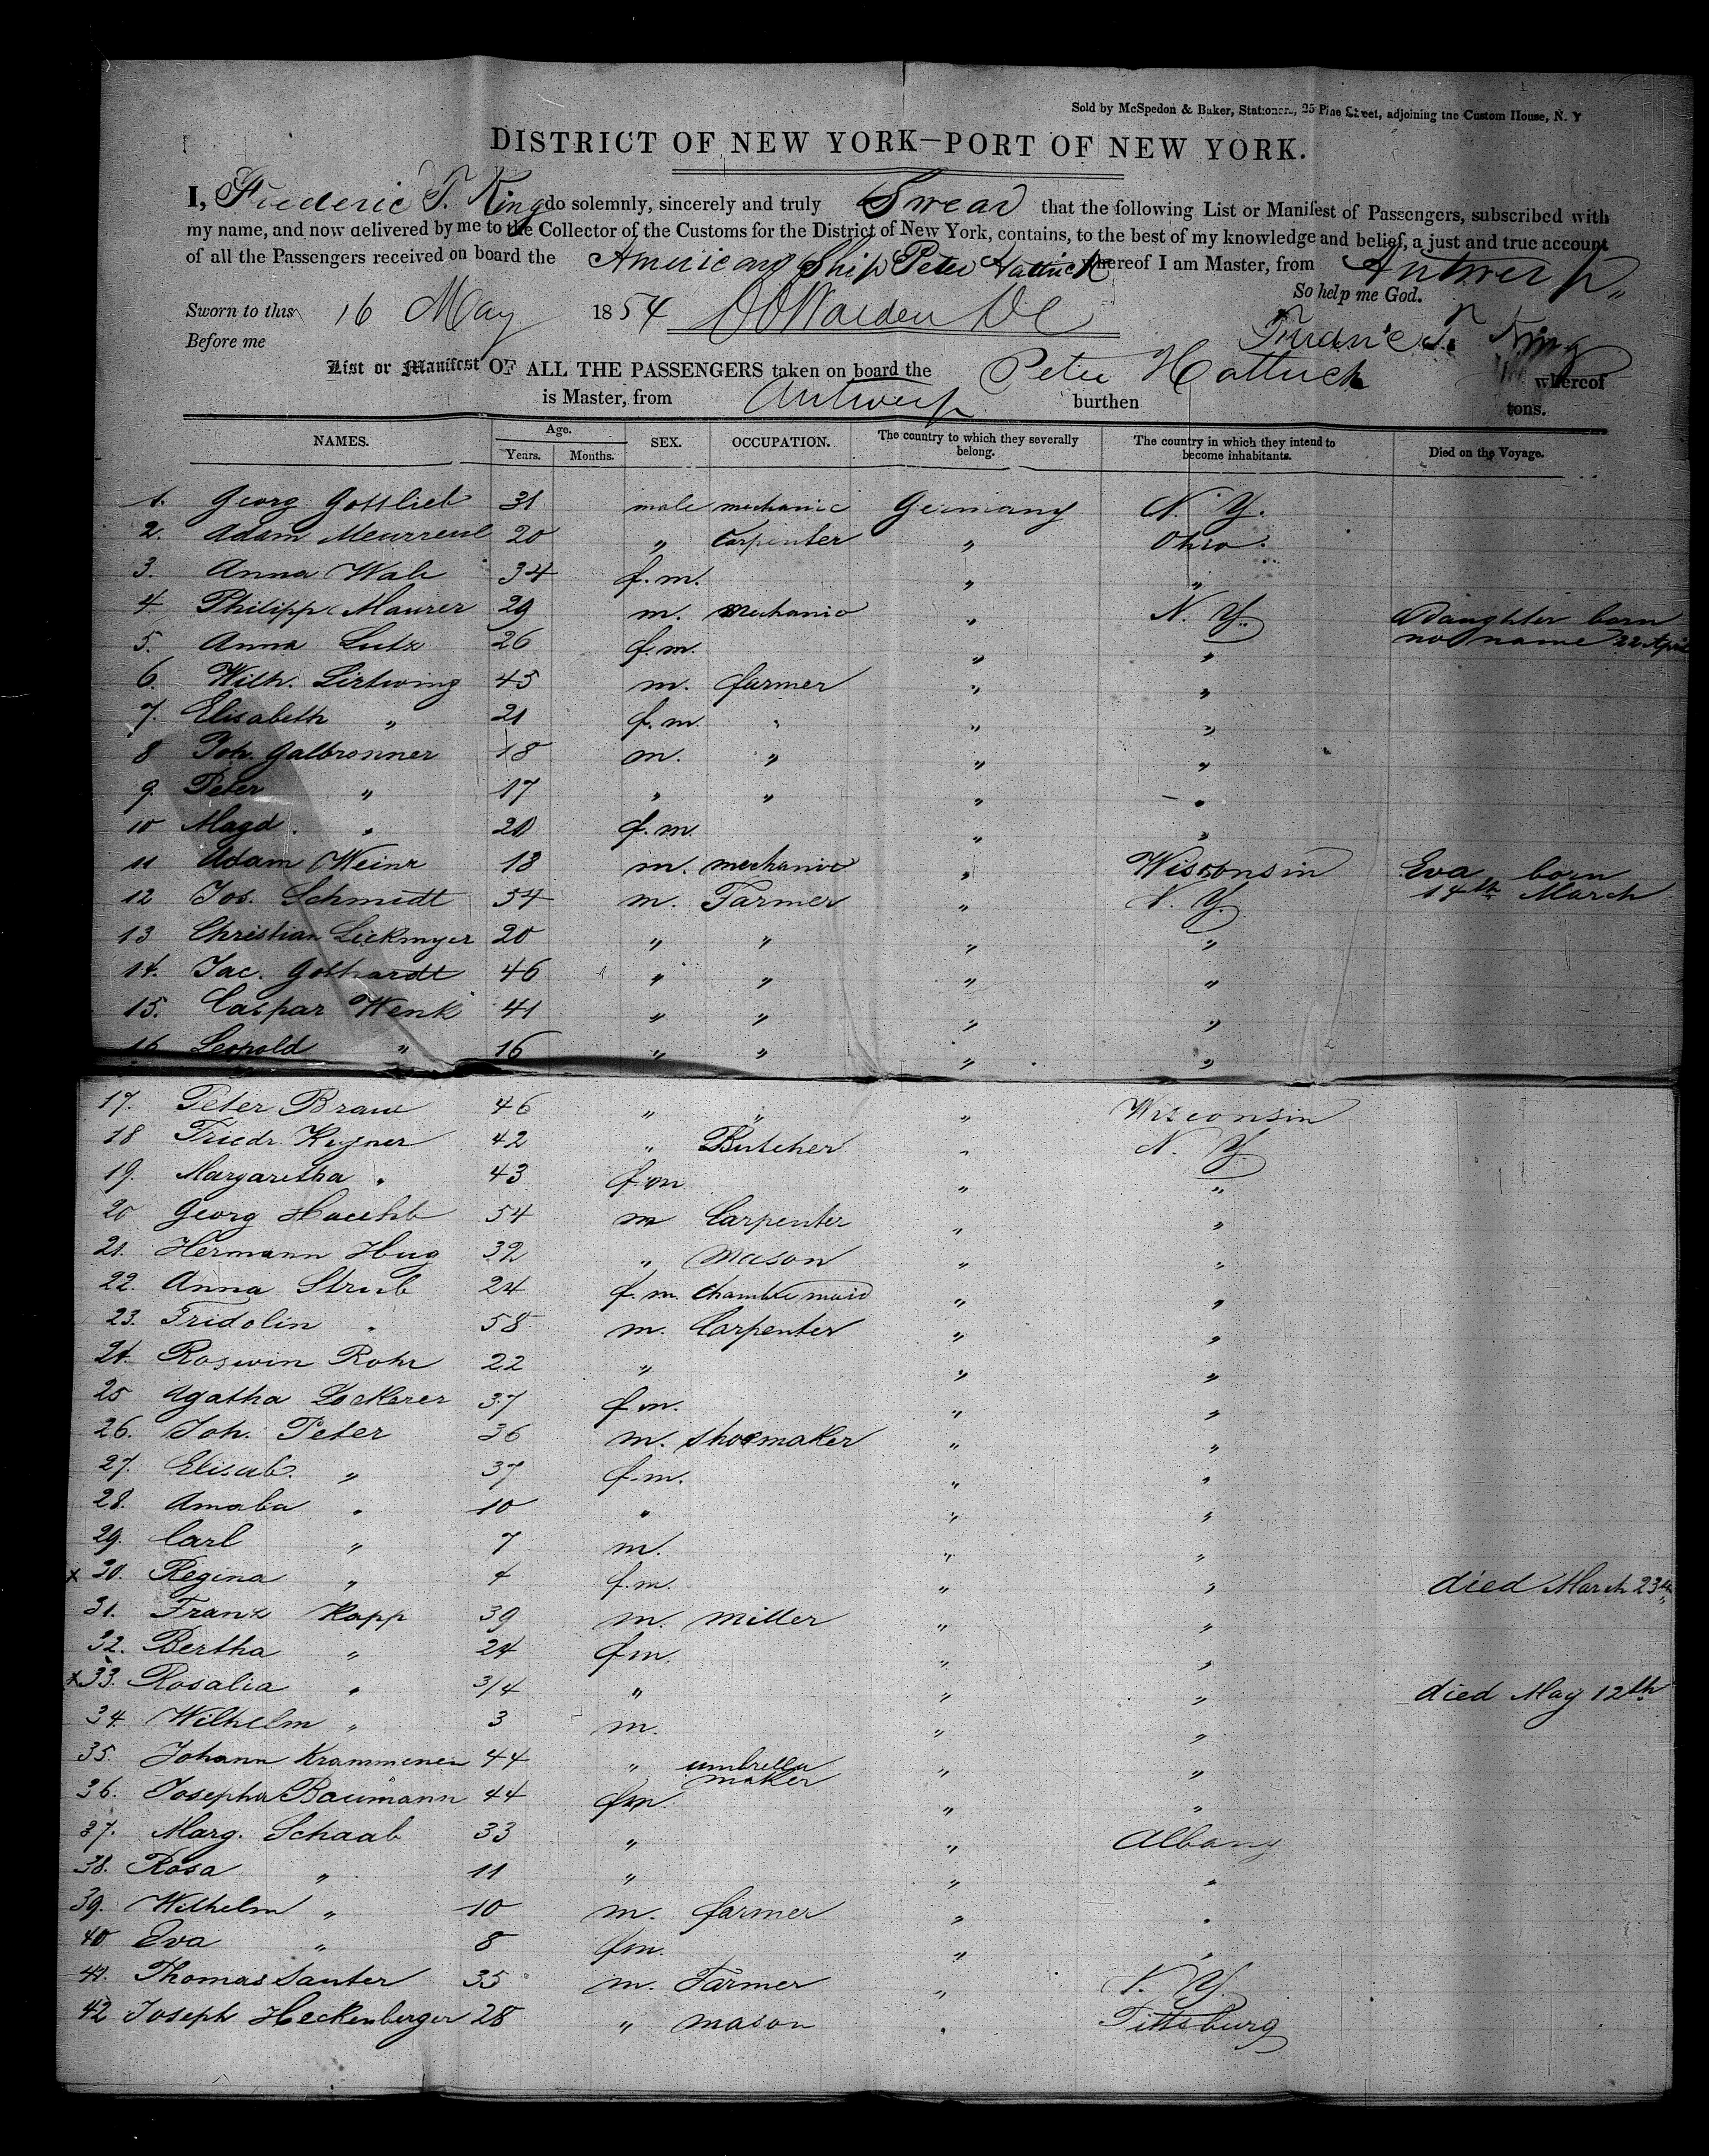 Sold by McSpedon & Baker, Stationers, 25 Pine Street, adjoining the Custom House, N. Y
DISTRICT OF NEW YORK—PORT OF NEW YORK.
I, Frederic T. King do solemnly, sincerely and truly Swear that the following List or Manifest of Passengers, subscribed with
my name, and now delivered by me to the Collector of the Customs for the District of New York, contains, to the best of my knowledge and belief, a just and true account
of all the Passengers received on board the American Ship Peter Hattrick whereof I am Master, from Antwerp
So help me God.
Sworn to this 16 May 1854
Before me
Frederic T. King
List or Manifest OF ALL THE PASSENGERS taken on board the Peter Hattrick whereof
is Master, from Antwerp burthen tons.
NAMES. Age. Years. Months. SEX. OCCUPATION. The country to which they severally belong. The country in which they intend to become inhabitants. Died on the Voyage.
1. Georg Gottlieb 31 male mechanic Germany N. Y.
2. Adam 20 " Carpenter " Ohio.
3. Anna Wale 34 f.m. " "
4 Philipp Maurer 29 m. mechanic " N. Y. Daughter born
5. Anna Lutz 26 f.m. " " no name 22 April
6. Wilh. 45 m. farmer " "
7. Elisabeth " 21 f.m. " " "
8 Joh. Galbronner 18 m. " " "
9. Peter " 17 " " " "
10 Magd. " 20 f.m. " "
11 Adam Weinz 18 m. mechanic " Wisconsin Eva born
12 Jos. Schmidt 54 m. Farmer " N. Y. 14th March
13 Christian Lickmyer 20 " " " "
14. Jac. Gothardt 46 " " " "
15. Caspar Wenk 41 " " " "
16 Leopold " 16 " " " "
17. Peter Braun 46 " " " Wisconsin
18 Friedr. Keyner 42 " Butcher " N. Y.
19. Margaretha " 43 f.m " "
20 Georg 54 m Carpenter " "
21. Hermann Hug 32 " mason " "
22. Anna Strub 24 f.m. Chambermaid " "
23. Fridolin " 58 m. Carpenter " "
24. Roswin Rohr 22 " " "
25 Agatha Lockerer 37 f.m. " "
26. Joh. Peter 36 m. shoemaker " "
27. Elisab. " 37 f.m. " "
28. Amaba " 10 " " "
29. Carl " 7 m. " "
x 30. Regina " 4 f.m. " " died March 23d
31. Franz Kapp 39 m. miller " "
32. Bertha " 24 f.m. " "
x 33. Rosalia " 3/4 " " " died May 12th
34. Wilhelm " 3 m. " "
35. Johann Krammenen 44 " umbrella maker " "
36. Josepha Baumann 44 f.m. " "
37. Marg. Schaab 33 " " Albany
38. Rosa " 11 " " "
39. Wilhelm " 10 m. farmer " "
40 Eva " 8 f.m. " "
41. Thomas Sauter 35 m. Farmer " N. Y.
42 Joseph Heckenberger 28 " mason " Pittsburg